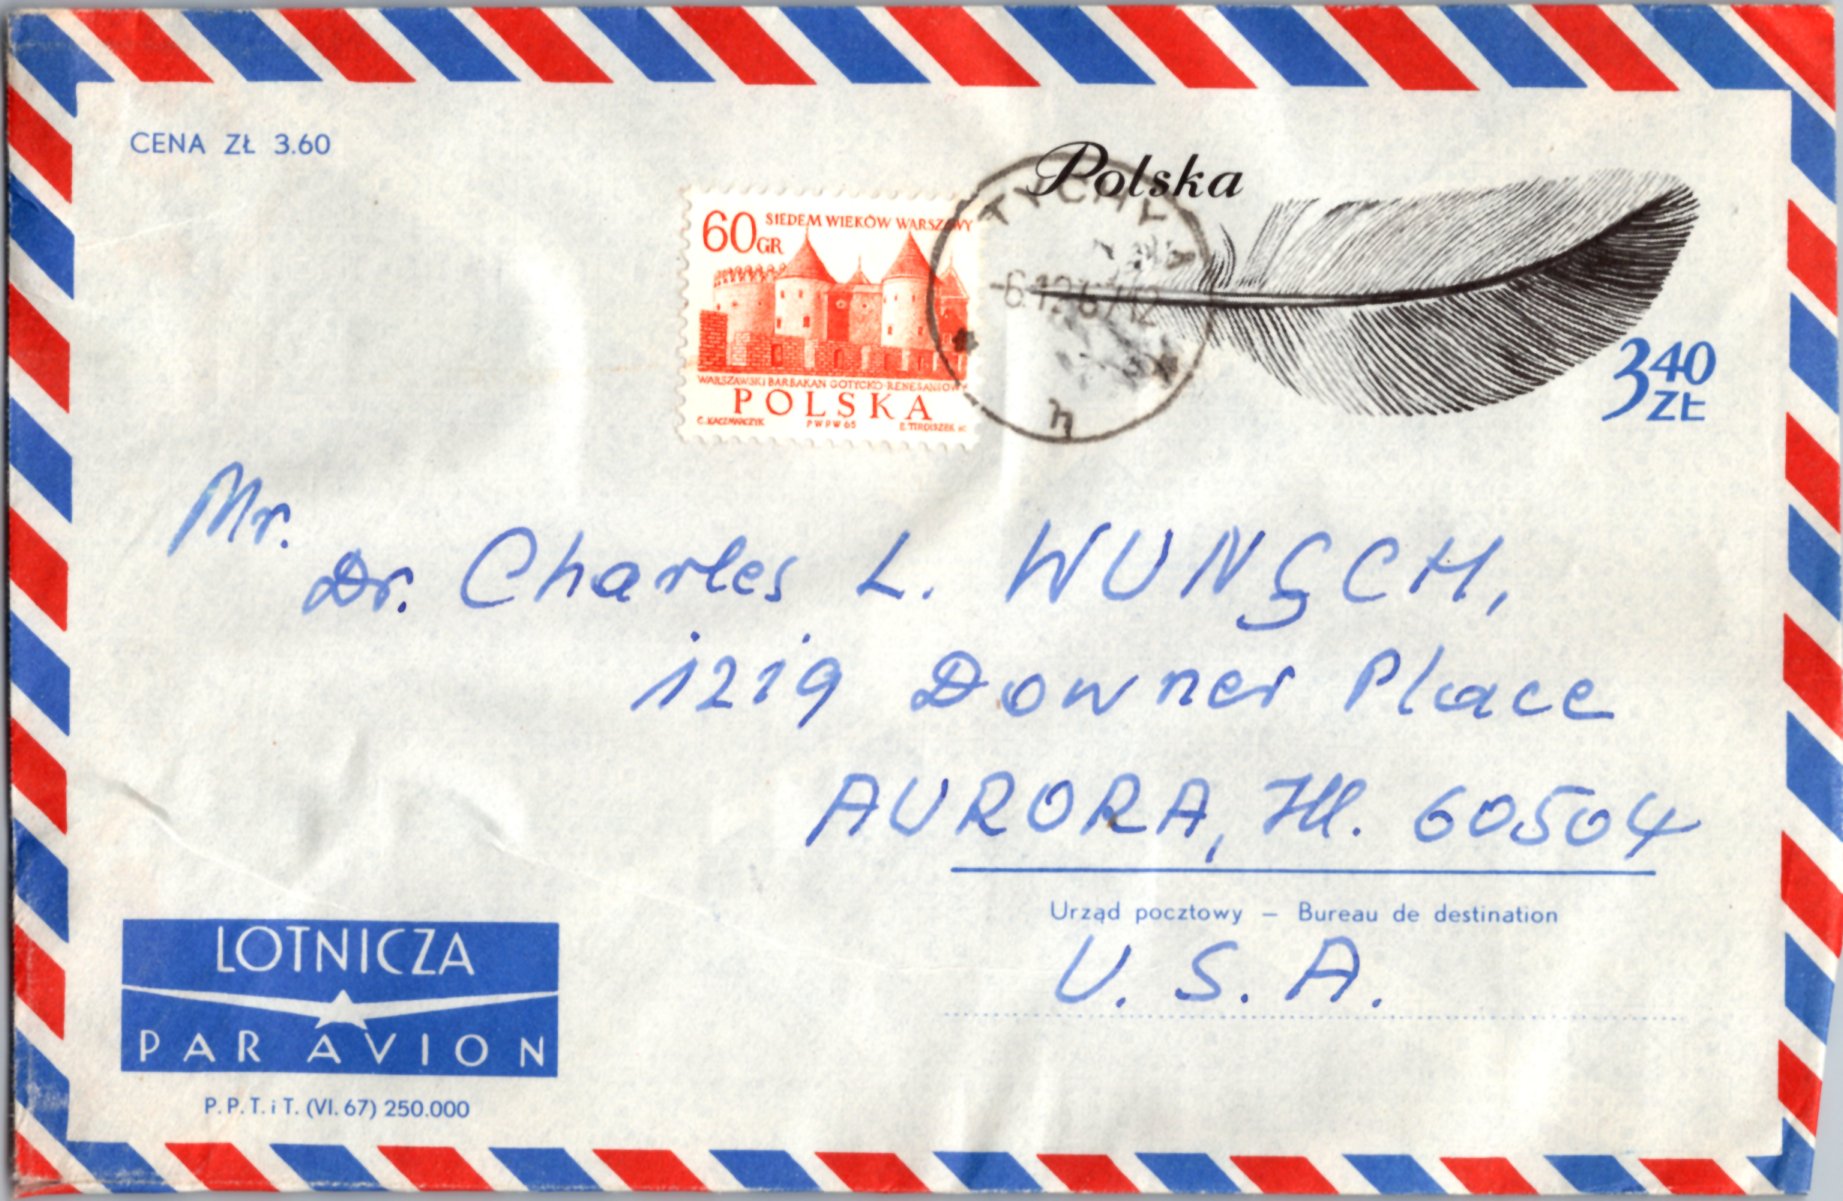 CENA ZŁ 3.60
Polska
60GR SIEDEM WIEKÓW WARSZAWY
TYCHY
-6.12.67.12
3 40 ZŁ
WARSZAWSKI BARBAKAN GOTYCKO-RENESANSOWY
POLSKA
C. KACZMARCZYK PWPW 65 E. TIRDISZEK SC.
h
Mr.
Dr. Charles L. WUNSCH,
1219 Downer Place
AURORA, Ill. 60504
Urząd pocztowy – Bureau de destination
U. S. A.
LOTNICZA
PAR AVION
P.P.T. i T. (VI. 67) 250.000